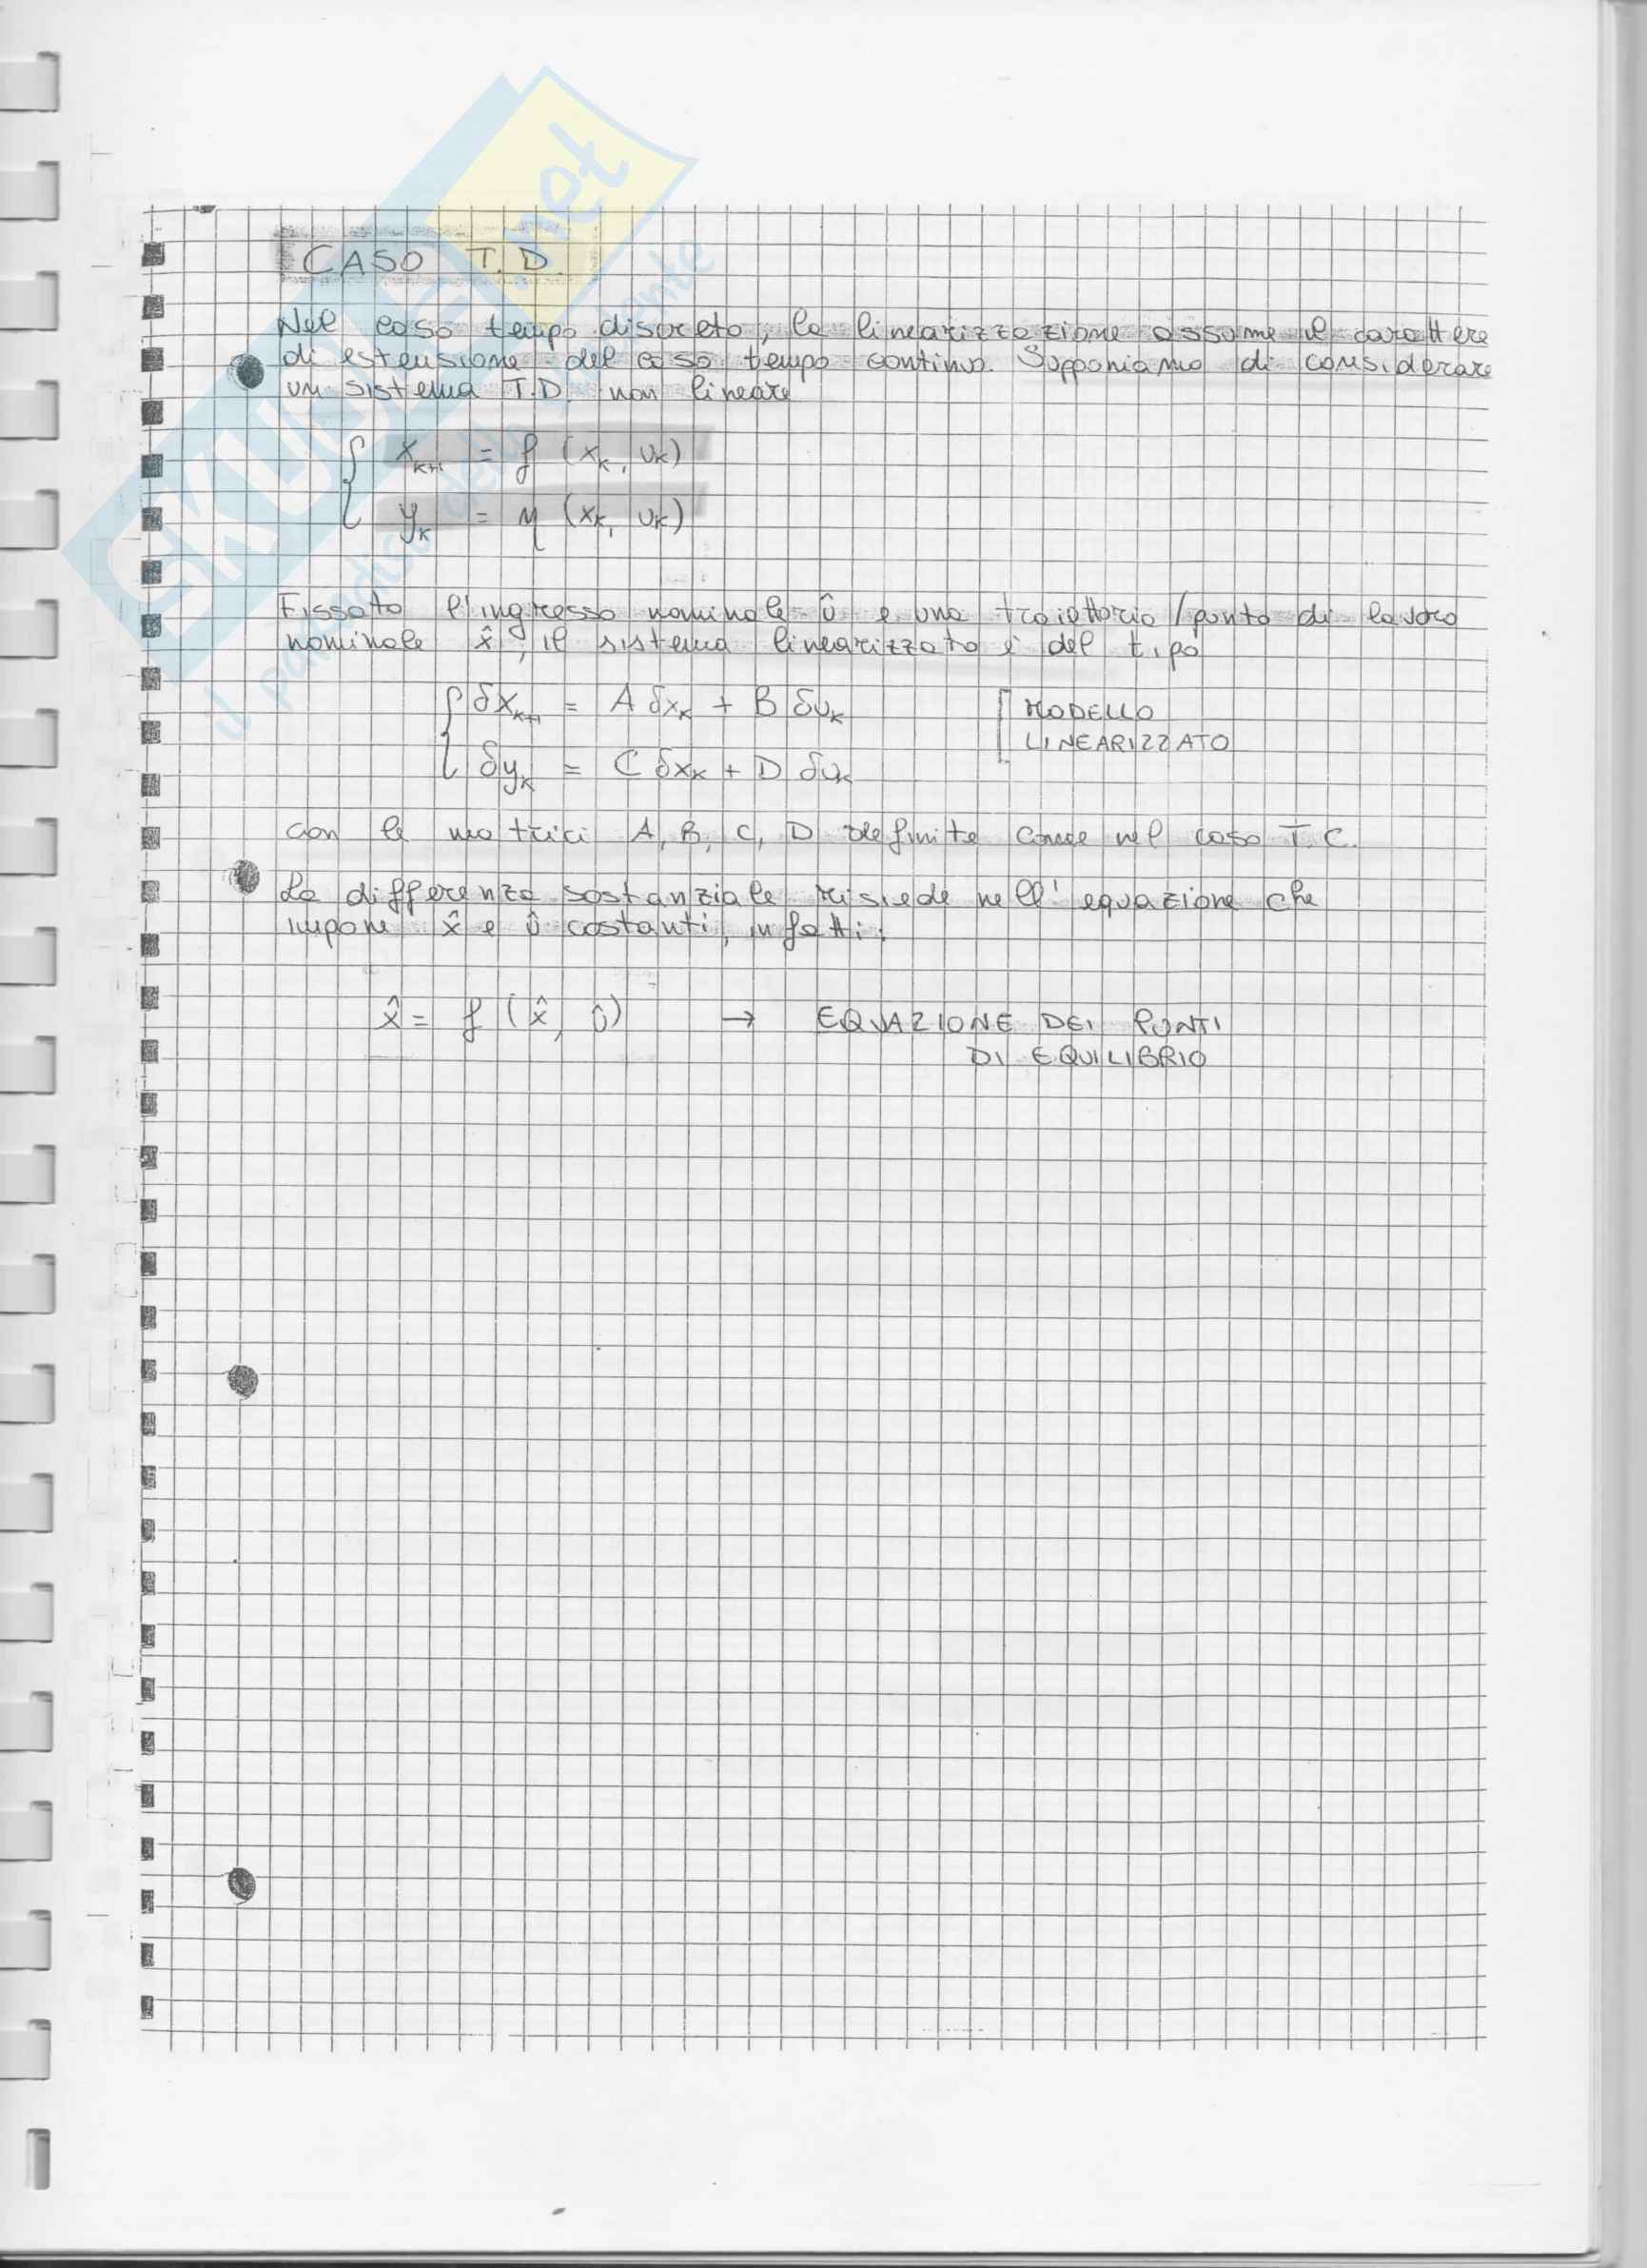 CASO T.D.
Nel caso tempo discreto, la linearizzazione assume il carattere
di estensione del caso tempo continuo. Supponiamo di considerare
un sistema T.D. non lineare
x_{k+1} = f (x_k, u_k)
y_k = η (x_k, u_k)
Fissato l'ingresso nominale û e una traiettoria / punto di lavoro
nominale x̂, il sistema linearizzato è del tipo
δx_{k+1} = A δx_k + B δu_k [MODELLO
LINEARIZZATO
δy_k = C δx_k + D δu_k
con le matrici A, B, C, D definite come nel caso T.C.
La differenza sostanziale risiede nell'equazione che
impone x̂ e û costanti, infatti:
x̂ = f (x̂, û) → EQUAZIONE DEI PUNTI
DI EQUILIBRIO
SKUOLA.net
il paradiso dello studente